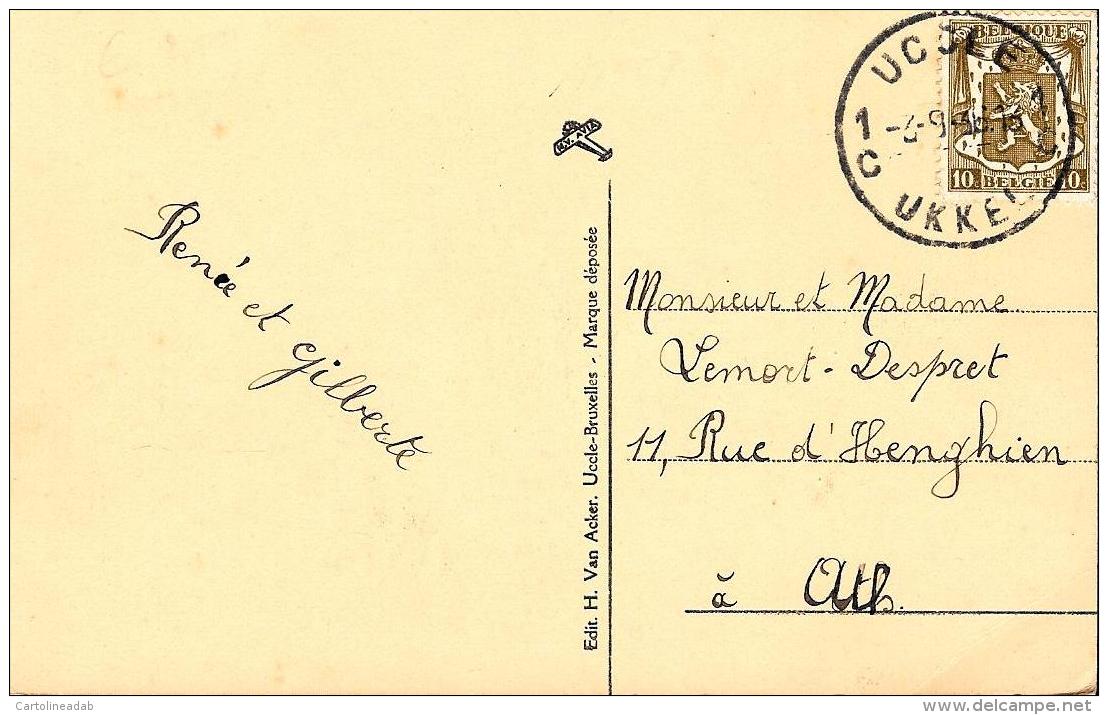 Renée et Gilberte
H.V. AVIA
Edit. H. Van Acker. Uccle-Bruxelles - Marque déposée
UCCLE
1
C
UKKEL
BELGIQUE
10c BELGIE 10c
Monsieur et Madame
Lemort - Despret
11, Rue d'Henghien
à Ath.
Cartolineadab
www.delcampe.net